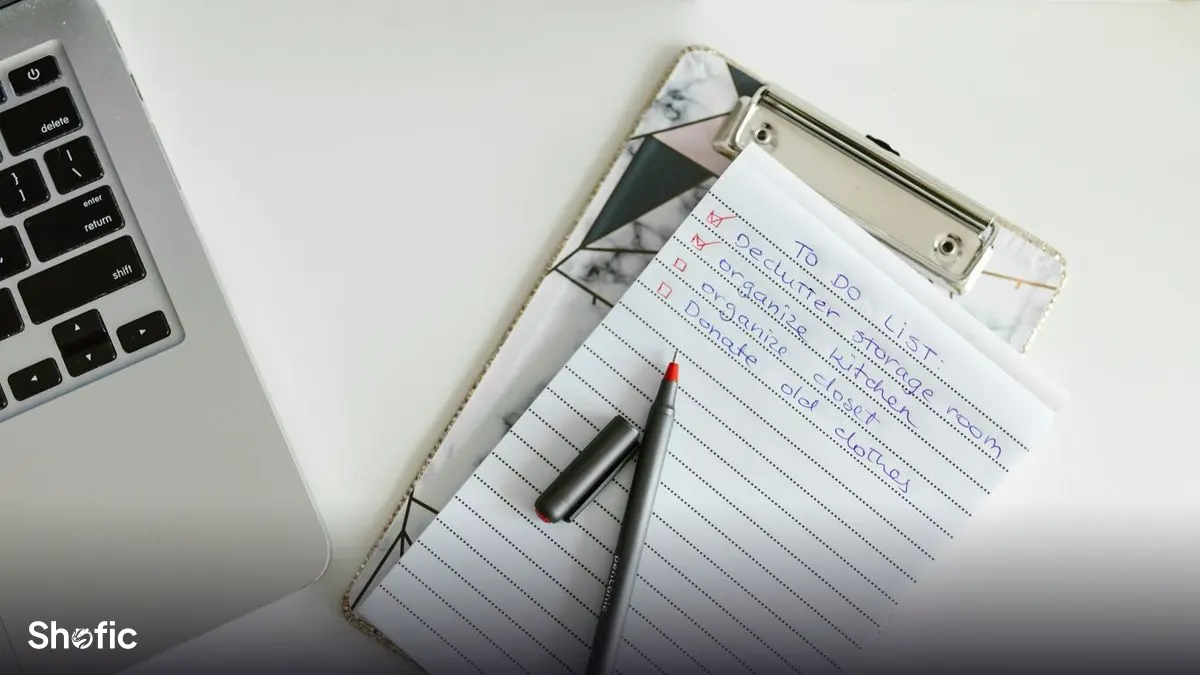 delete
}
]
|
\
enter
return
shift
TO DO LIST.
Declutter storage room
organize kitchen
organize closet
Donate old clothes
pentonic
Shofic